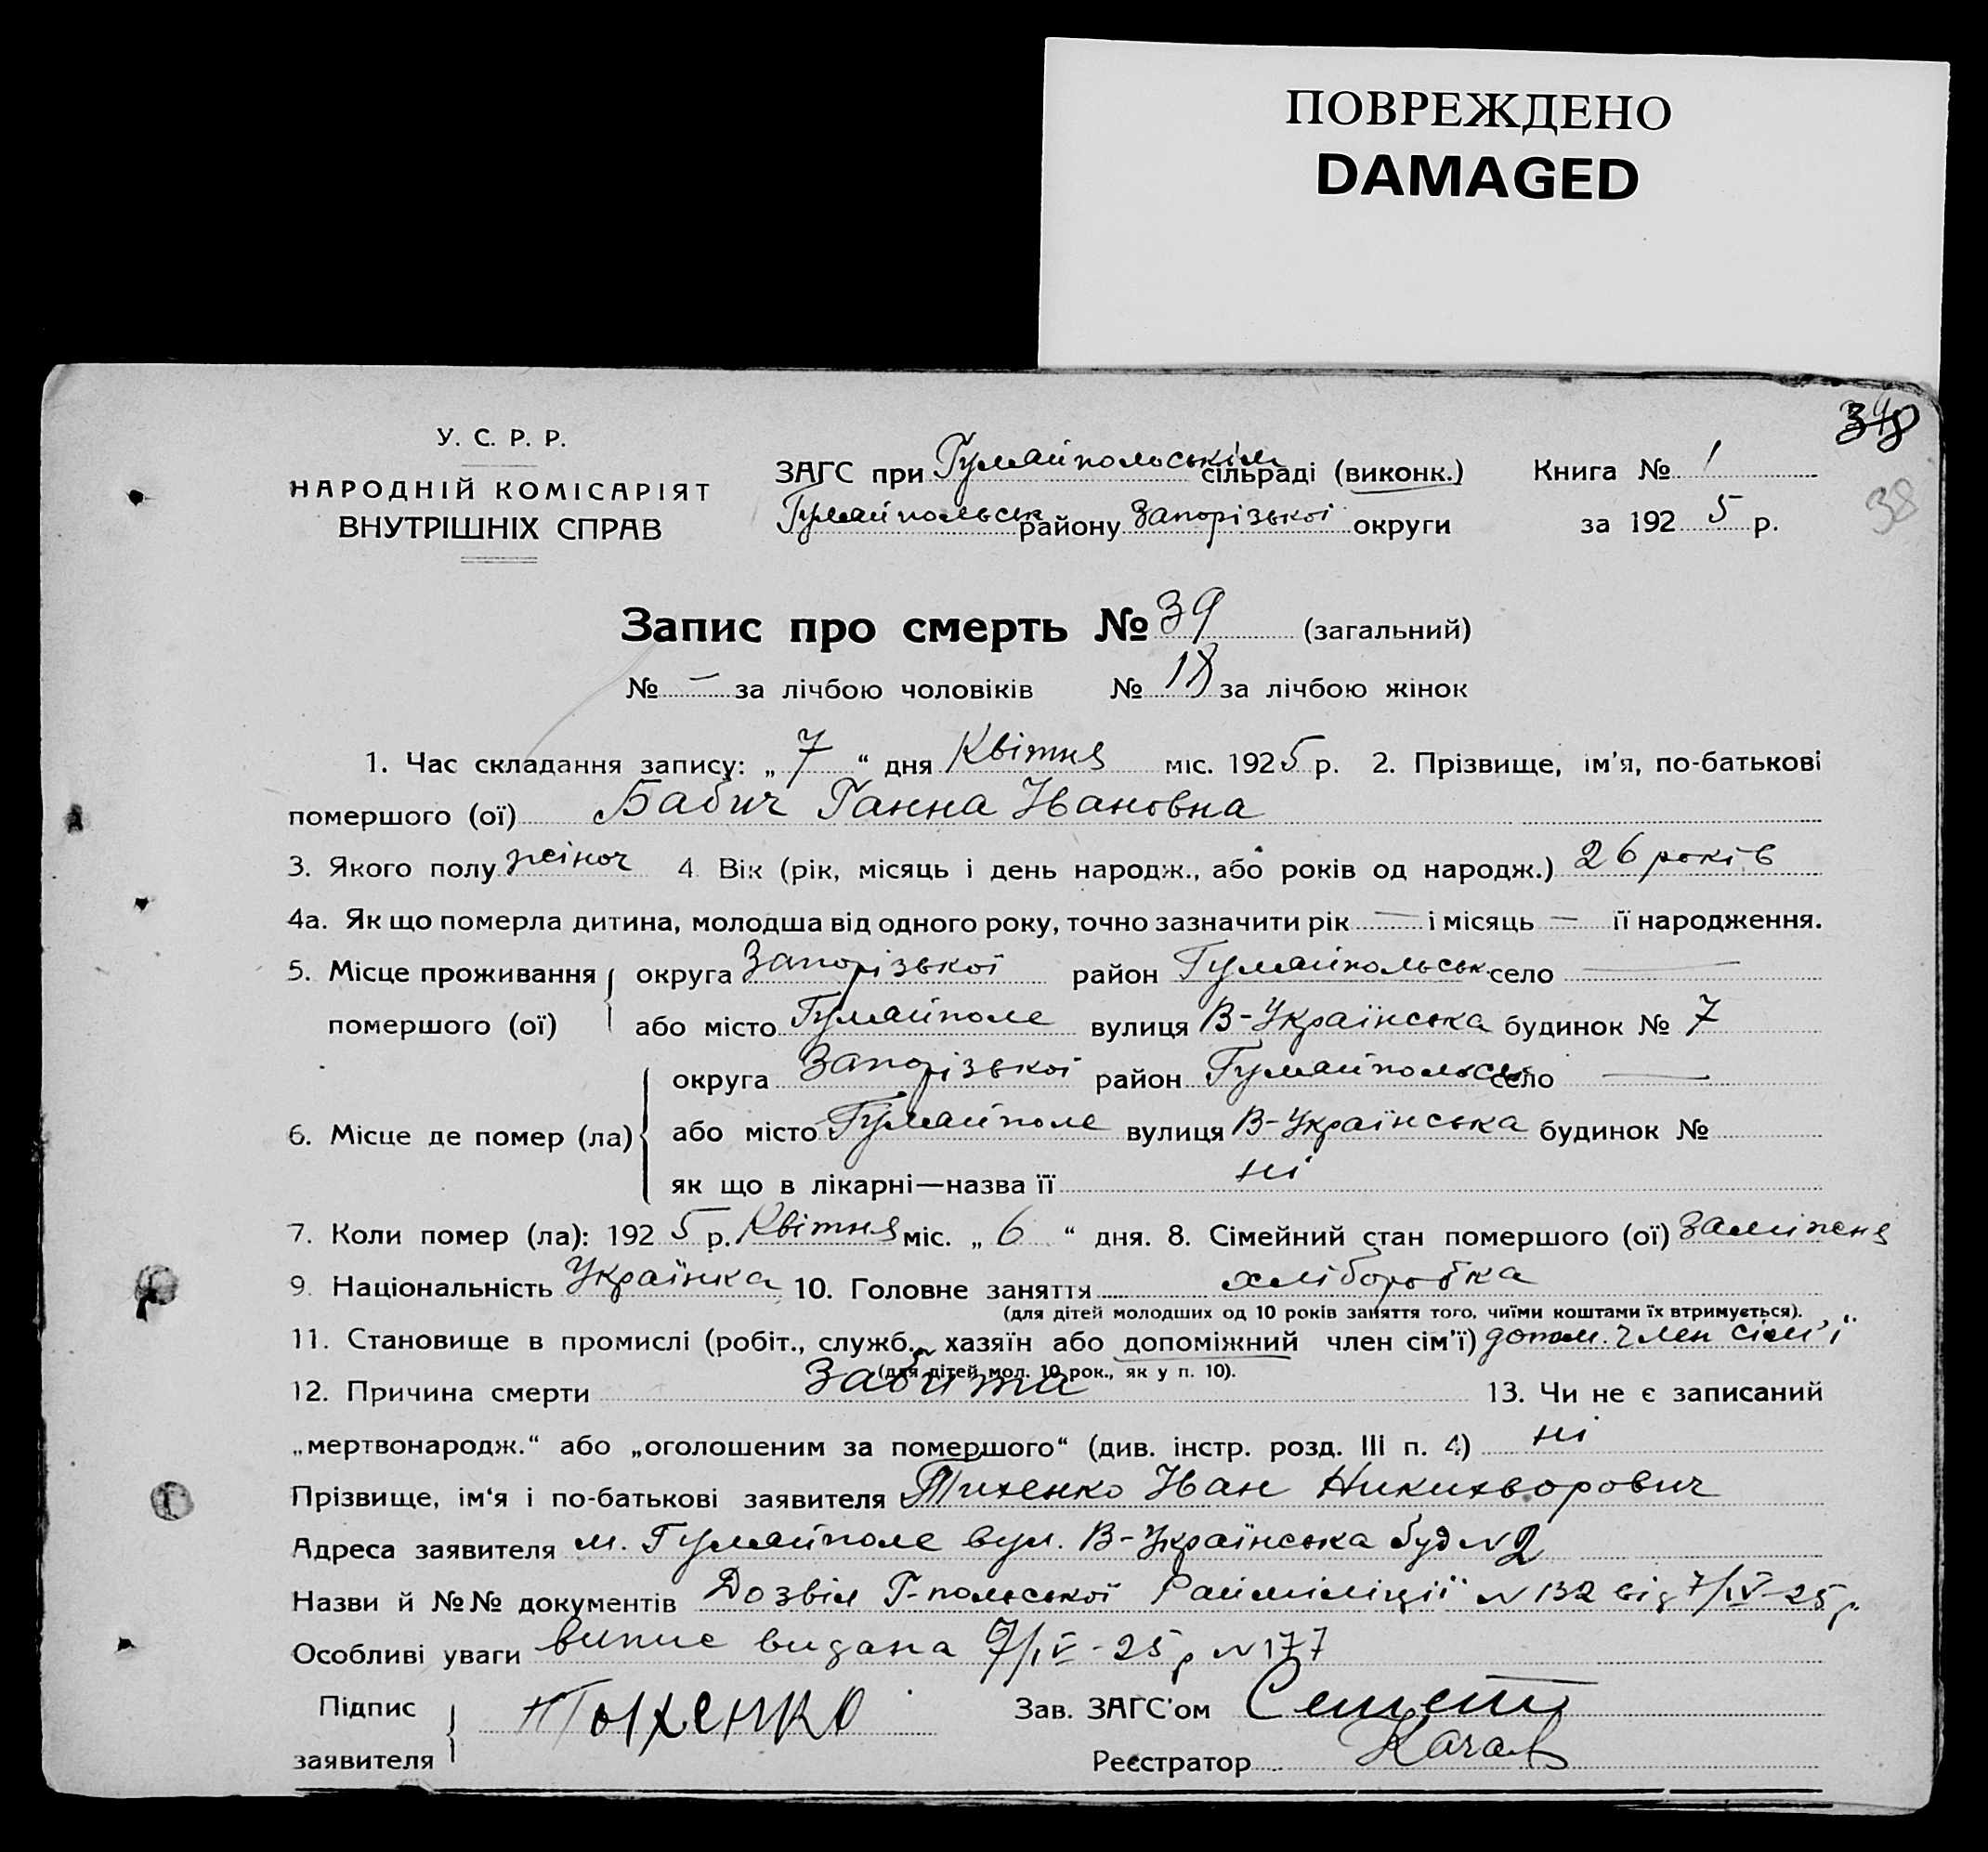 ПОВРЕЖДЕНО
DAMAGED
38
38
У. С. Р. Р.
НАРОДНІЙ КОМІСАРІЯТ
ВНУТРІШНІХ СПРАВ
ЗАГС при Гуляйпольськім сільраді (виконк.) Книга № 1
Гуляйпольськ району Запорізької округи за 1925 р.
Запис про смерть № 39 (загальний)
№ — за лічбою чоловіків № 18 за лічбою жінок
1. Час складання запису: „ 7 “ дня Квітня міс. 1925 р. 2. Прізвище, ім’я, по-батькові
помершого (ої) Бабич Ганна Івановна
3. Якого полу жіноч 4 Вік (рік, місяць і день народж., або років од народж.) 26 років
4а. Як що померла дитина, молодша від одного року, точно зазначити рік — і місяць — її народження.
5. Місце проживання округа Запорізької район Гуляйпольськ. село —
помершого (ої) або місто Гуляйполе вулиця В-Українська будинок № 7
округа Запорізької район Гуляйпольськ село —
6. Місце де помер (ла) або місто Гуляйполе вулиця В-Українська будинок №
як що в лікарні—назва її ні
7. Коли помер (ла): 1925 р. Квітня міс. „ 6 “ дня. 8. Сімейний стан помершого (ої) заміжня
9. Національність Українка 10. Головне заняття хліборобка
(для дітей молодших од 10 років заняття того, чиїми коштами їх втримується).
11. Становище в промислі (робіт., служб., хазяїн або допоміжний член сім’ї) допом. член сім’ї
(для дітей мол. 10 рок., як у п. 10).
12. Причина смерти Забита 13. Чи не є записаний
„мертвонародж.“ або „оголошеним за помершого“ (див. інстр. розд. III п. 4) ні
Прізвище, ім‘я і по-батькові заявителя Тихенко Іван Никихворович
Адреса заявителя м. Гуляйполе вул. В-Українська буд N 2
Назви й №№ документів Дозвіл Г-польської Райміліції N 132 від 7/IV-25 р.
Особливі уваги випис видана 7/IV-25 р N 177
Підпис Тыхенко Зав. ЗАГС’ом
заявителя Реєстратор